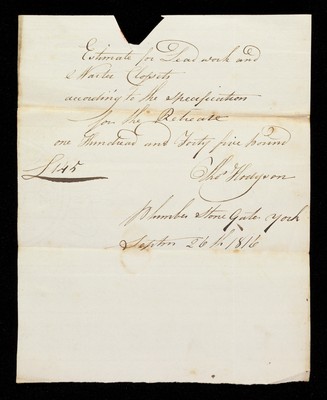 Estimate for Lead work and
2 Water Clossets
according to the Specification
for the Retreate
one Hundred and Forty five pound
£145
Thos Hodgson
Plumber Stone Gate York
Septem 26th 1816